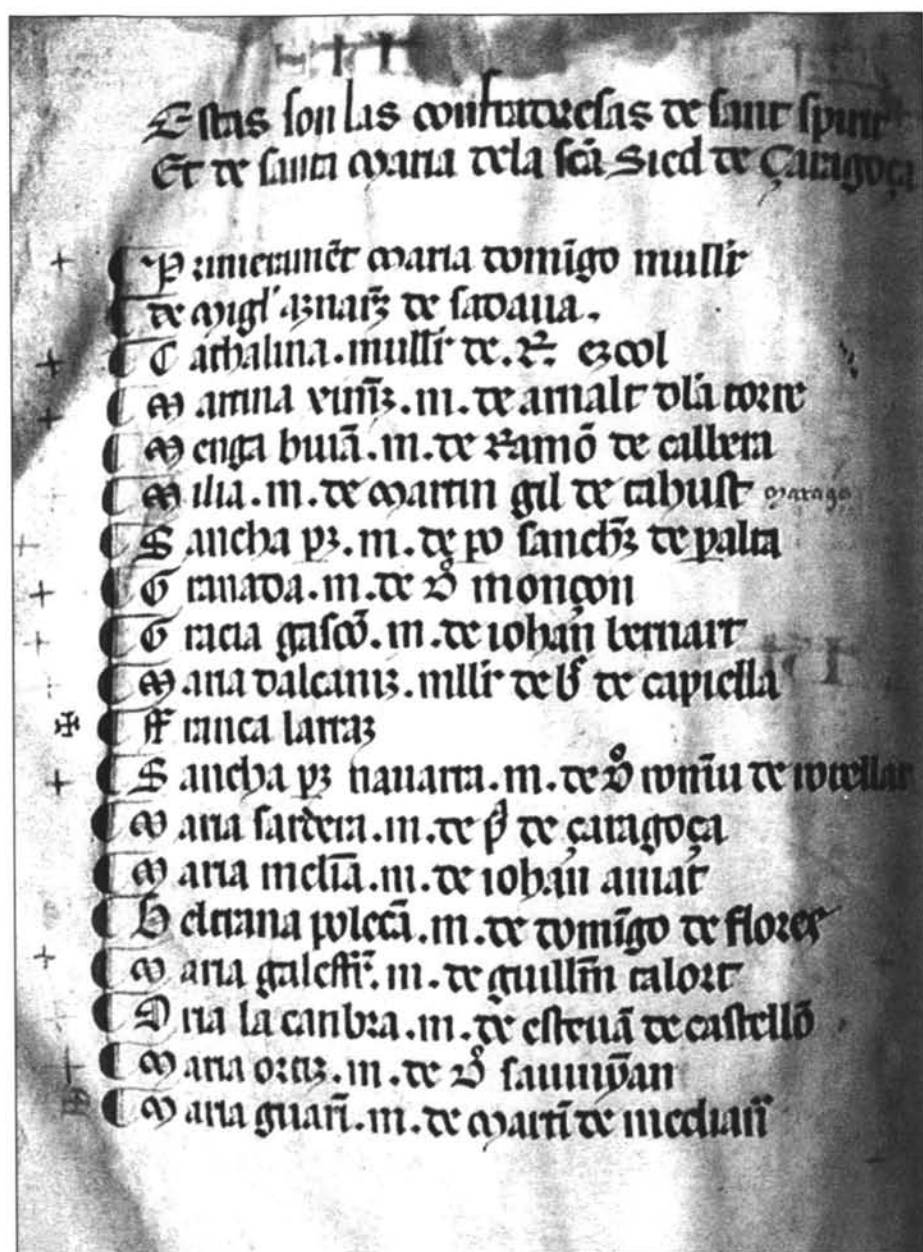 Estas son las confradresas de sant spirit
Et de santa maria dela scã Sied de Çaragoça
Primeramẽt maria domĩgo mullr̃
de migl' aznarz̃ de sadaua.
Cathalina. mullr̃ de.
Martina m. de arnalt dla torre
Menga buiã. m. de Ramõ de callera
Milia. m. de martin gil de tahust
Sancha pz̃. m. de po sanchz̃ de palta
Granada. m. de monçon
Gracia gascõ. m. de iohan bernart
Maria dalcaniz. mllr̃ de de capiella
ffranca larraz
Sancha pz̃ nauarra. m. de romiu de
Maria sardera. m. de de çaragoça
Maria meliã. m. de iohan amat
m. de domĩgo de flores
Maria m. de guillm̃ calort
Oria la canbra. m. de esteuã de castellõ
Maria ortiz. m. de
Maria guarñ. m. de martĩ de